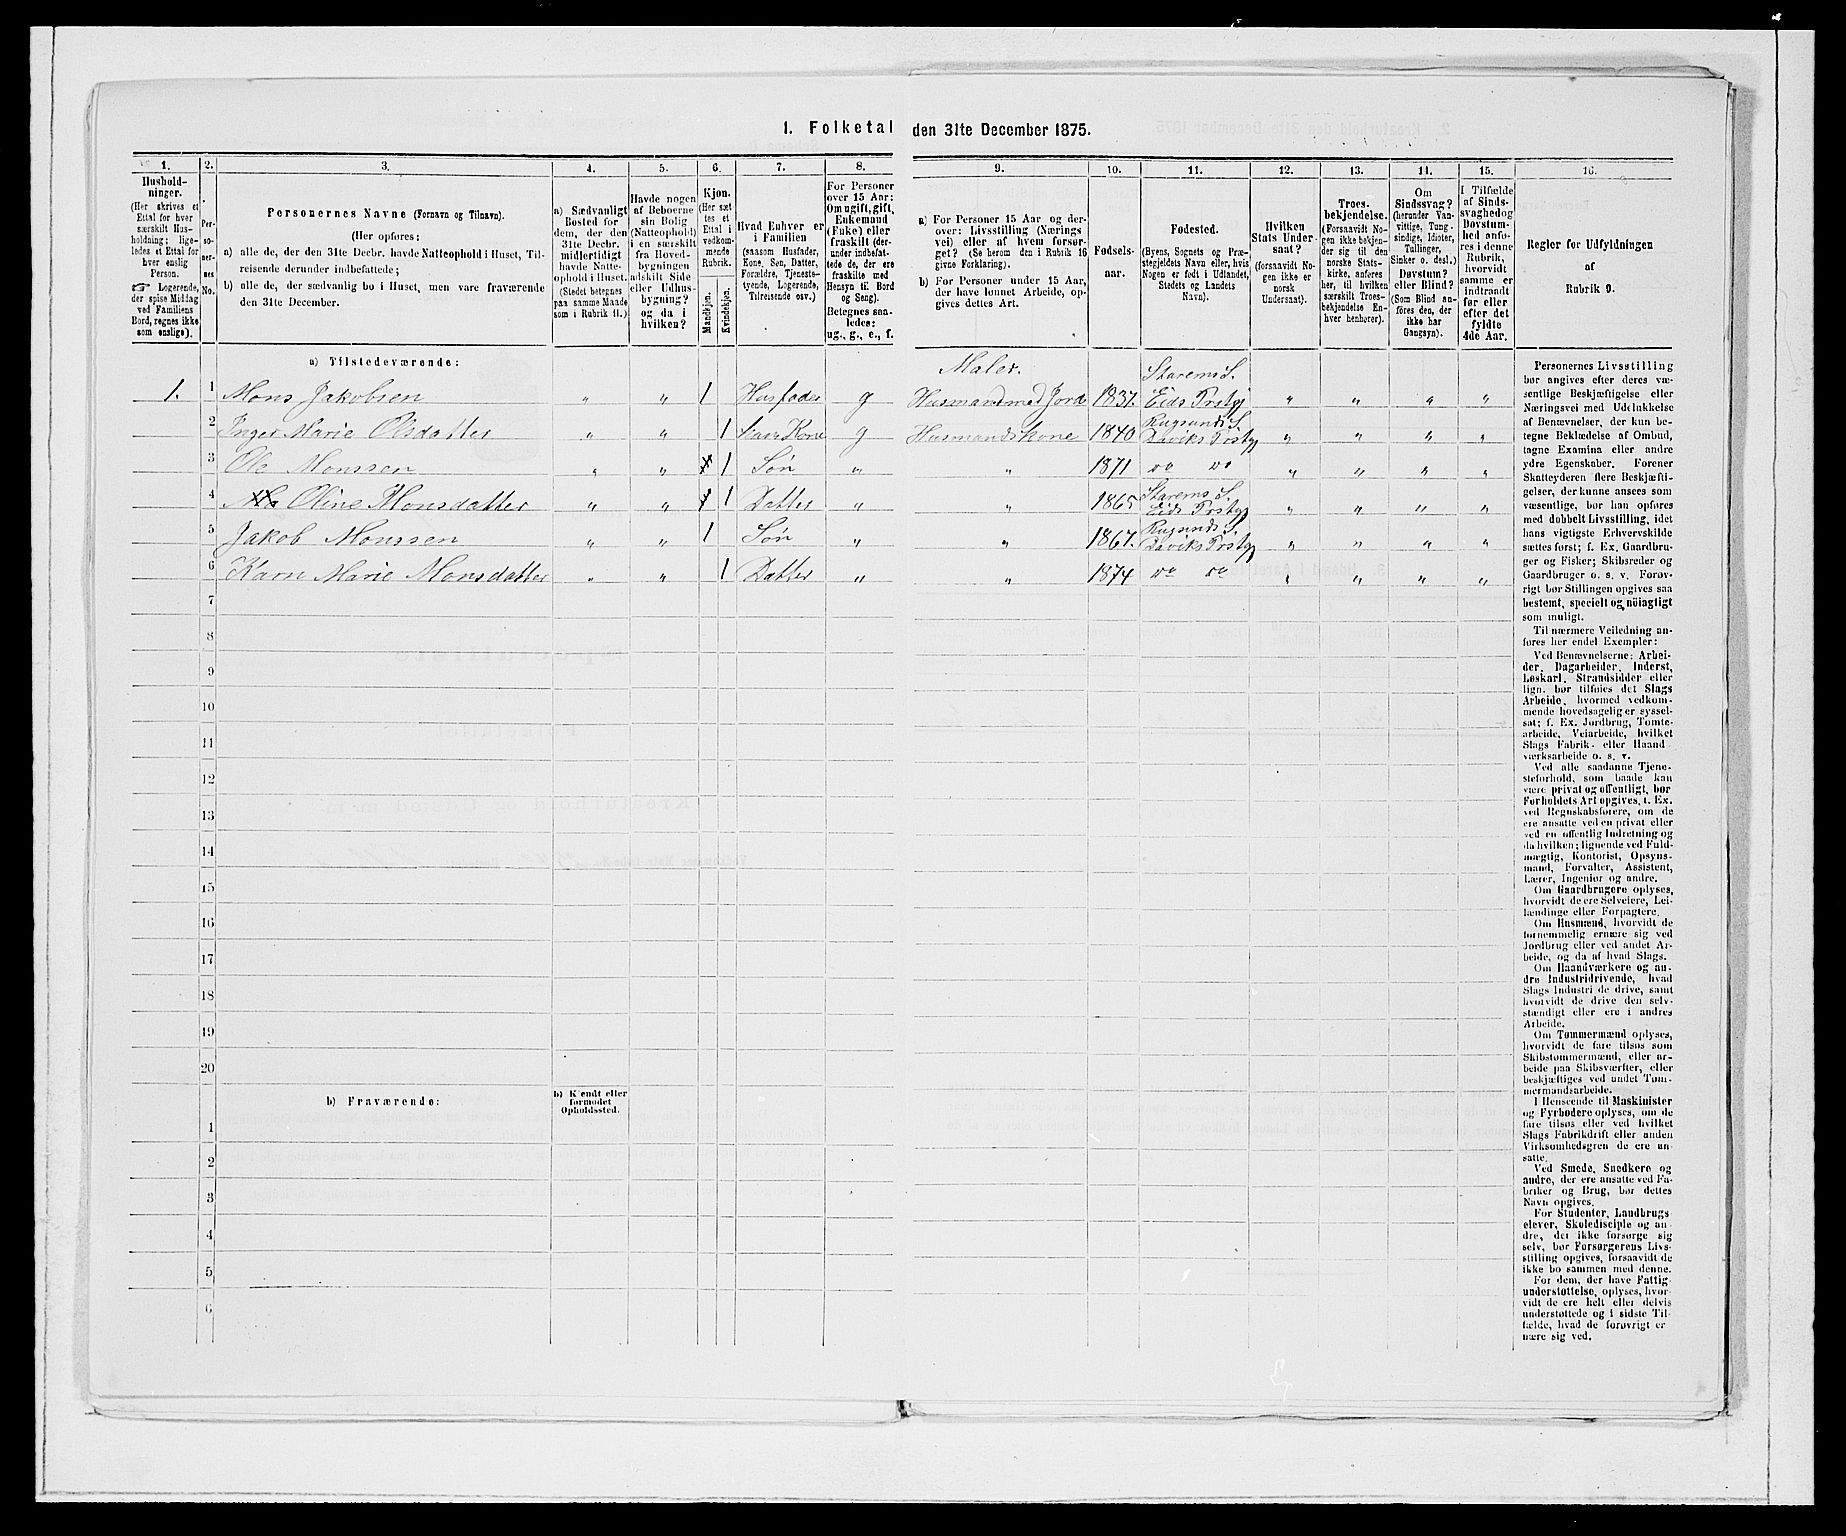 1. Folketal den 31te December 1875.
1.
Hushold-
ninger.
(Her skrives et
Ettal for hver
særskilt Hus-
holdning; lige-
ledes et Ettal for
hver enslig
Person.
☞ Logerende,
der spise Middag
ved Familiens
Bord, regnes ikke
som enslige).
2.
Per-
so-
ner-
nes
No.
3.
Personernes Navne (Fornavn og Tilnavn).
(Her opføres:
a) alle de, der den 31te Decbr. havde Natteophold i Huset, Til-
reisende derunder indbefattede;
b) alle de, der sædvanlig bo i Huset, men vare fraværende
den 31te December.
4.
a) Sædvanligt
Bosted for
dem, der den
31te Decbr.
midlertidigt
havde Natte-
ophold i Huset.
(Stedet betegnes
paa samme Maade
som i Rubrik 11.)
5.
Havde nogen
af Beboerne
sin Bolig
(Natteophold)
i en særskilt
fra Hoved-
bygningen
adskilt Side
eller Udhus-
bygning?
og da i
hvilken?
6.
Kjøn.
(Her sæt
tes et
Ettal i
vedkom-
mende
Rubrik.
Mandkjøn.
Kvindekjøn.
7.
Hvad Enhver er
i Familien
(saasom Husfader,
Kone, Søn, Datter,
Forældre, Tjeneste-
tyende, Logerende,
Tilreisende osv.)
8.
For Personer
over 15 Aar:
Om ugift, gift,
Enkemand
(Enke) eller
fraskilt (der-
under indbefat-
tede de, der ere
fraskilte med
Hensyn til Bord
og Seng).
Betegnes saa-
ledes:
ug., g., e., f.
9.
a) For Personer 15 Aar og der-
over: Livsstilling (Nærings
vei) eller af hvem forsør-
get? (Se herom den i Rubrik 16
givne Forklaring).
b) For Personer under 15 Aar,
der have lønnet Arbeide, op-
gives dettes Art.
10.
Fødsels-
aar.
11.
Fødested.
(Byens, Sognets og Præ-
stegjeldets Navn eller, hvis
Nogen er født i Udlandet,
Stedets og Landets
Navn).
12.
Hvilken
Stats Under-
saat?
(forsaavidt No-
gen ikke er
norsk
Undersaat).
13.
Troes-
bekjendelse.
(Forsaavidt No-
gen ikke bekjen-
der sig til den
norske Stats-
kirke, anføres
her, til hvilken
særskilt Troes-
bekjendelse En-
hver henhører).
14.
Om
Sindssvag?
(herunder Van-
vittige, Tung-
sindige, Idioter,
Tullinger,
Sinker o. desl.)
Døvstum?
eller Blind?
(Som Blind an-
føres den, der
ikke har
Gangsyn).
15.
I Tilfælde
af Sinds-
svaghed og
Døvstum-
hed anfø-
res i denne
Rubrik,
hvorvidt
samme er
indtraadt
før eller
efter det
fyldte
4de Aar.
16.
Regler for Udfyldningen
af
Rubrik 9.
a) Tilstedeværende:
1. 1 Mons Jakobsen " " 1 Husfader g Maler. Husmand med Jord 1837. Starems S. Eids Prstgj " " " "
2 Inger Marie Olsdatter " " 1 hans Kone g Husmandskone 1840 Rugsunds S. Daviks Prstgj " " " "
3 Ole Monssen " " 1 Søn " " 1871 do do " " " "
4 Oline Monsdatter " " 1 Datter " " 1865 Starems S. Eids Prstgj " " " "
5 Jakob Monssen " " 1 Søn " " 1867. Rugsunds S. Daviks Prstgj " " " "
6 Karn Marie Monsdatter " " 1 Datter " " 1874 do do " " " "
7
8
9
10
11
12
13
14
15
16
17
18
19
20
b) Fraværende:
b) Kjendt eller
formodet
Opholdssted.
1
2
3
4
5
6
Personernes Livsstilling
bør angives efter deres væ-
sentlige Beskjæftigelse eller
Næringsvei med Udelukkelse
af Benævnelser, der kun be-
tegne Beklædelse af Ombud,
tagne Examina eller andre
ydre Egenskaber. Forener
Skatteyderen flere Beskjæfti-
gelser, der kunne ansees som
væsentlige, bør han opføres
med dobbelt Livsstilling, idet
hans vigtigste Erhvervskilde
sættes først; f. Ex. Gaardbru-
ger og Fisker; Skibsreder og
Gaardbruger o. s. v. Forøv-
rigt bør Stillingen opgives saa
bestemt, specielt og nöiagtigt
som muligt.
Til nærmere Veiledning an-
føres her endel Exempler:
Ved Benævnelserne: Arbei-
der, Dagarbeider, Inderst,
Løskarl, Strandsidder eller
lign. bør tilføies det Slags
Arbeide, hvormed vedkom-
mende hovedsagelig er syssel-
sat; f. Ex. Jordbrug, Tomte-
arbeide, Veiarbeide, hvilket
Slags Fabrik- eller Haand
værksarbeide o. s. v.
Ved alle saadanne Tjene-
steforhold, som baade kan
være privat og offentligt, bør
Forholdets Art opgives, t. Ex.
ved Regnskabsførere, om de
ere ansatte ved en privat eller
ved en offentlig Indretning og
da hvilken; lignende ved Fuld-
mægtig, Kontorist, Opsyns-
mand, Forvalter, Assistent,
Lærer, Ingeniør og andre.
Om Gaardbrugere oplyses,
hvorvidt de ere Selveiere, Lei-
lændinge eller Forpagtere.
Om Husmænd, hvorvidt de
fornemmelig ernære sig ved
Jordbrug eller ved andet Ar-
beide, og da af hvad Slags.
Om Haandværkere og an-
dre Industridrivende, hvad
Slags Industri de drive, samt
hvorvidt de drive den selv-
stændigt eller ere i andres
Arbeide.
Om Tømmermænd oplyses,
hvorvidt de fare tilsøs som
Skibstømmermænd, eller ar-
beide paa Skibsværfter, eller
beskjæftiges ved andet Tøm-
mermandsarbeide.
I Henseende til Maskinister
og Fyrbødere oplyses, om de
fare tilsøs eller ved hvilket
Slags Fabrikdrift eller anden
Virksomhedsgren de ere an-
satte.
Ved Smede, Snedkere og
andre, der ere ansatte ved Fa-
briker og Brug, bør dettes
Navn opgives.
For Studenter, Landbrugs
elever, Skoledisciple og an
dre, der ikke forsørge sig
selv, bør Forsørgerens Livs-
stilling opgives, forsaavidt de
ikke bo sammen med denne.
For dem, der have Fattig-
understøttelse, oplyses, hvor-
vidt de ere helt eller delvis
understøttede og i sidste Til-
fælde, hvad de forøvrigt er
nære sig ved.